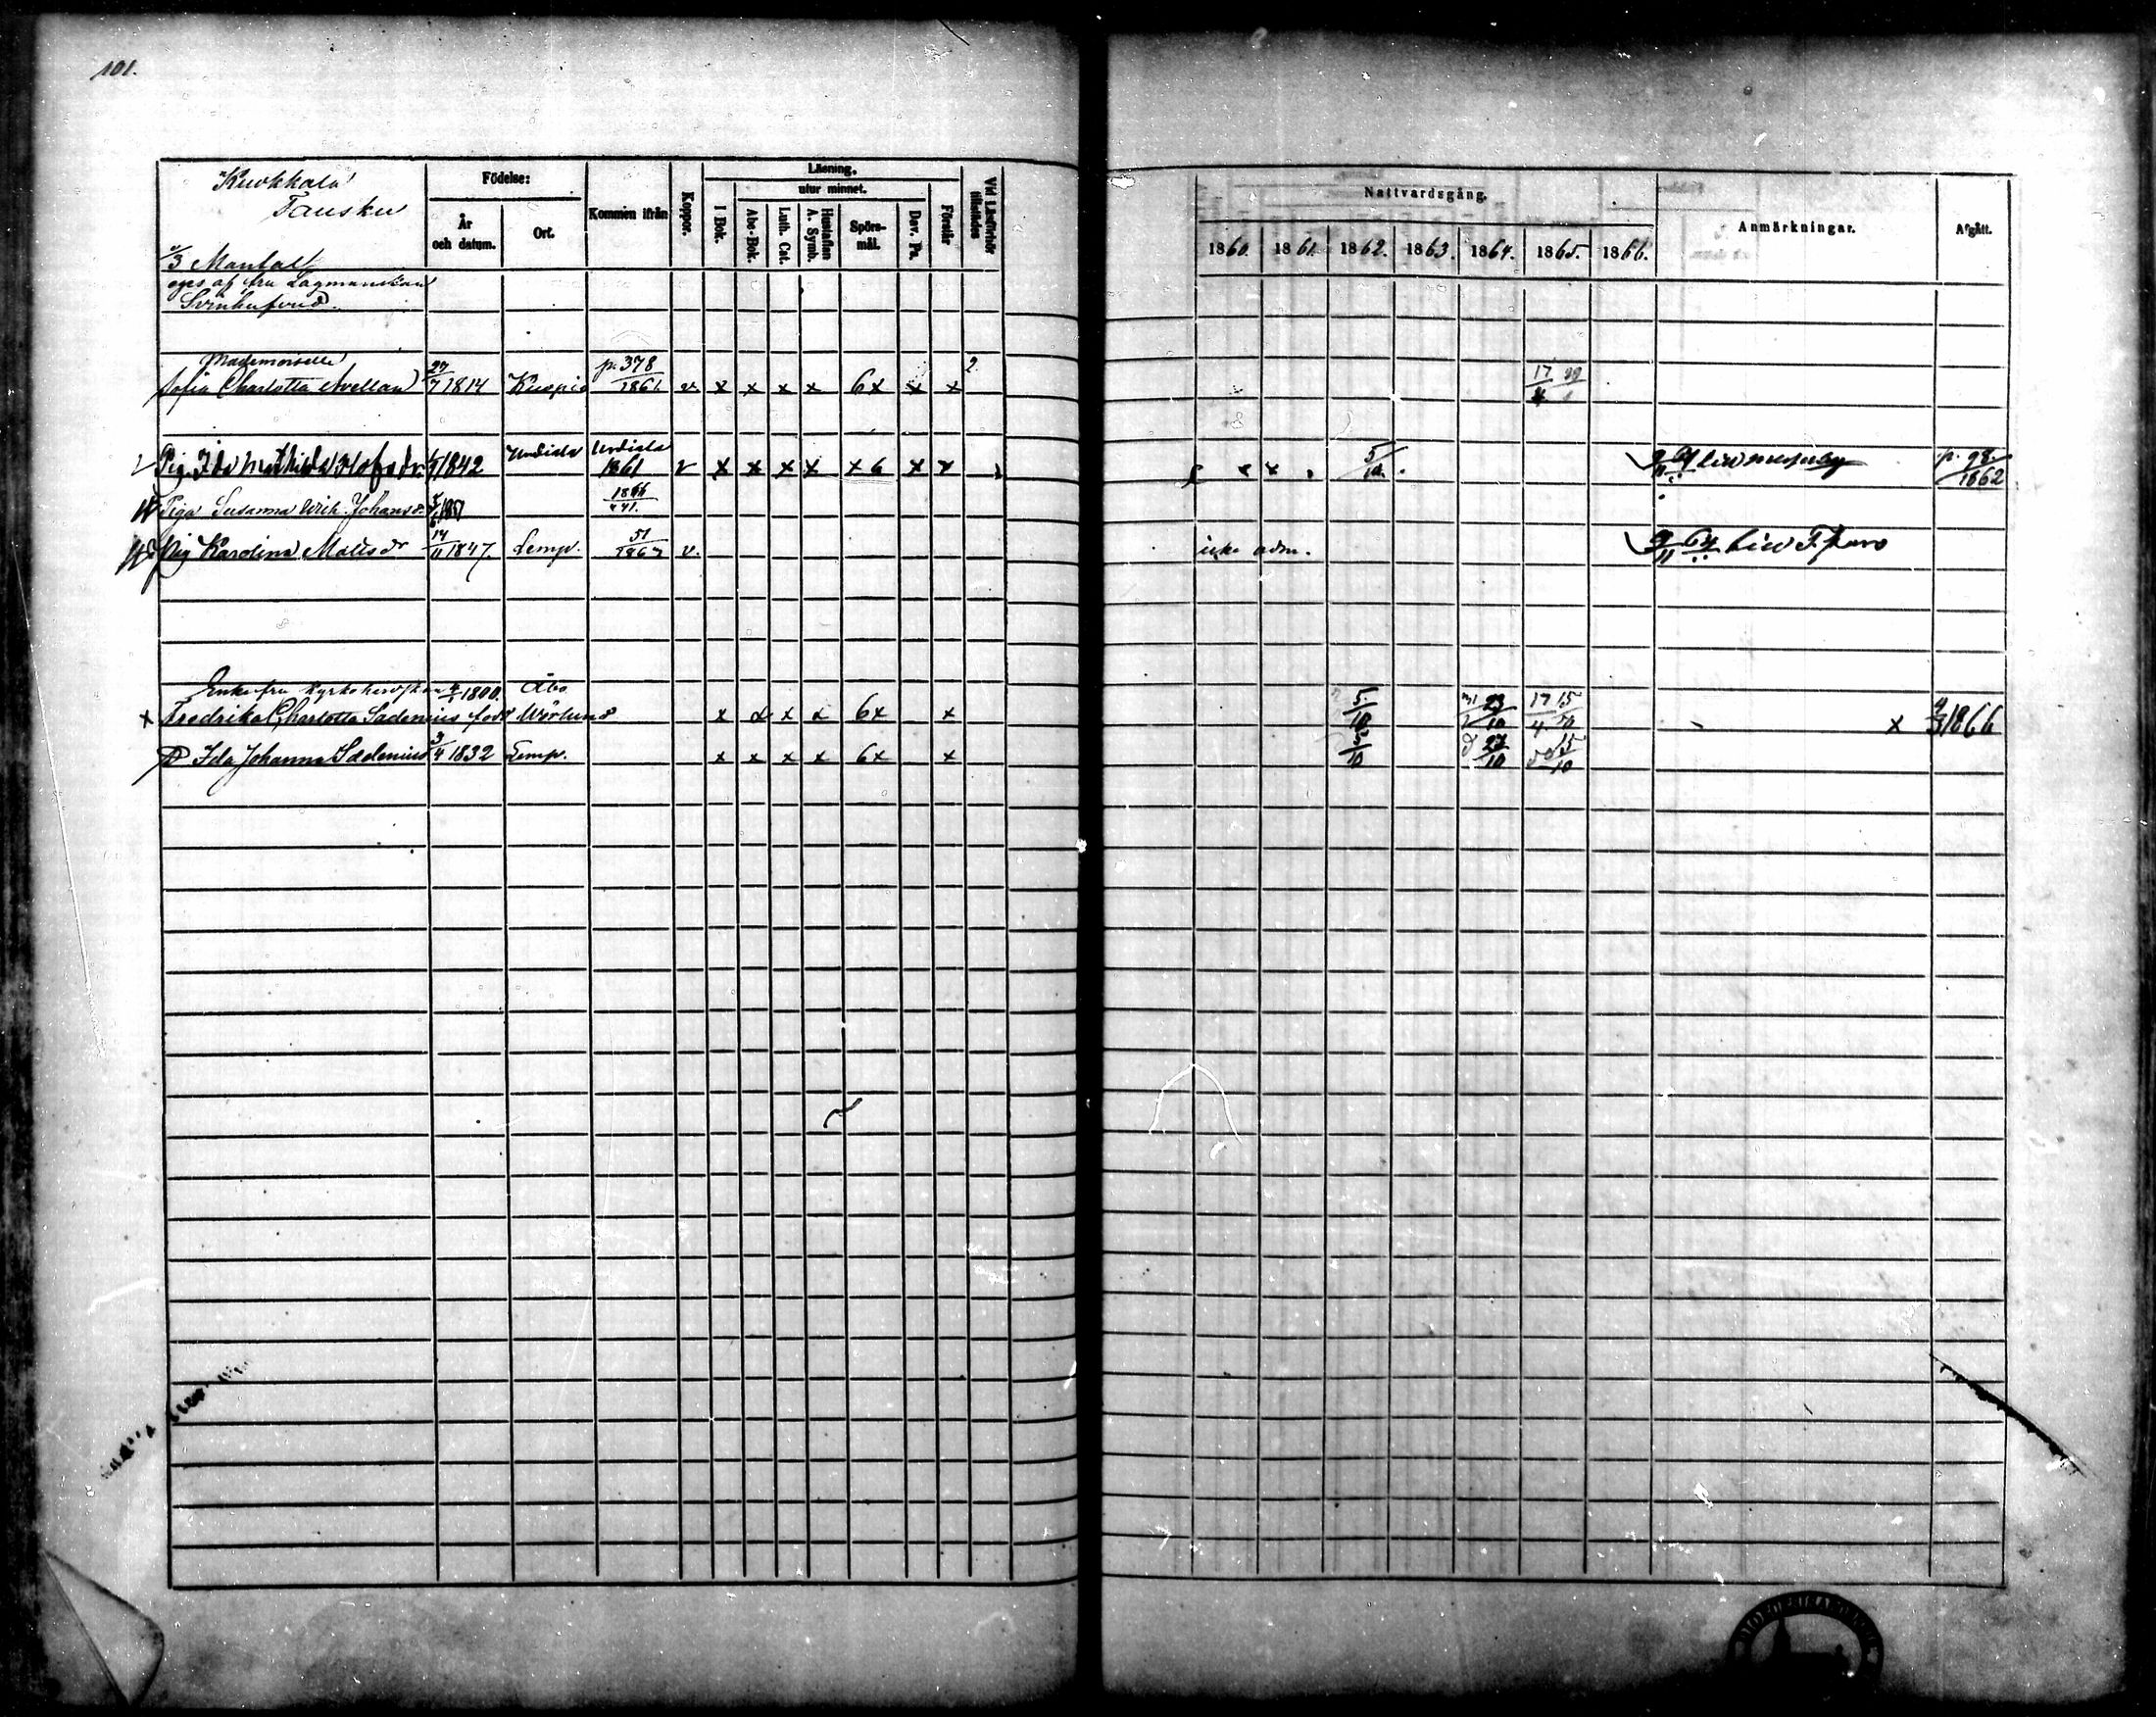 101.
Kuokkala
Tausku
1/3 Mantal
eges af fru Lagmanskan
Svinhufvud.
Födelse:
År och datum.
Ort.
Kommen ifrån
Koppor.
Läsning.
utur minnet.
I Bok.
Abc-Bok.
Luth. Cat.
Hustaflan A. Symb.
Spörsmål.
Dav. Ps.
Förstår
Vid Läseförhör tillstädes
Nattvardsgång.
1860. 1861. 1862. 1863. 1864. 1865. 1866.
Anmärkningar.
Afgått.
Mademoiselle
Sofia Charlotta Avellan 27/7 1814 Kuopio p. 378/1861. v x x x x 6x x x 2 17/4
Pig. Ida Mathilda 1842 Urdiala Urdiala 1861 v x x x x x6 x x 5/10. p. 98./1862
Piga Susanna Johansd. 1866
Pig Karolina Mattsdr 14/11 1847. Lemp. 51 v. icke adm. 9/11 64
Enkefru Kyrkoherdskan 1800. Åbo
x Fredrika Charlotta Sadenius född Wörlund x x x x 6x x 5/10 23/10 17/4 15/10 x 1866
Ida Johanna Sadenius 3/4 1832 Lemp. x x x x 6x x 5/10 27/10 15/10